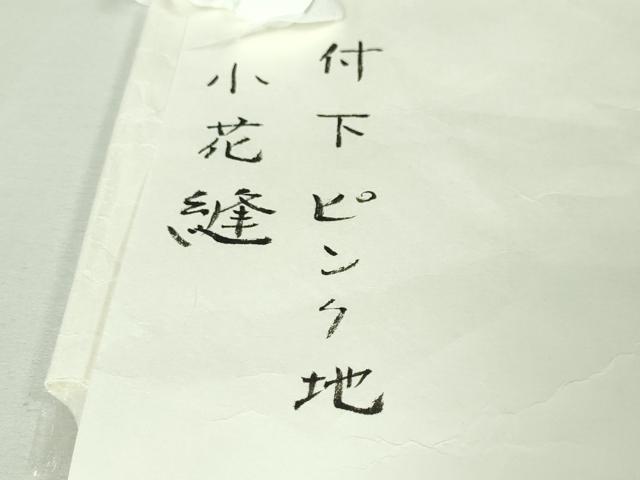 付下ピンク地
小花縫